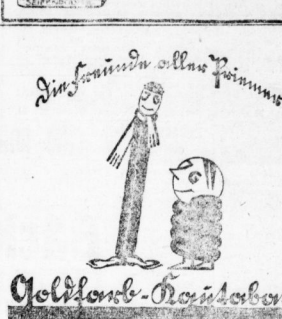 Die Freunde aller Priemer
Goldfarb-Kautaba